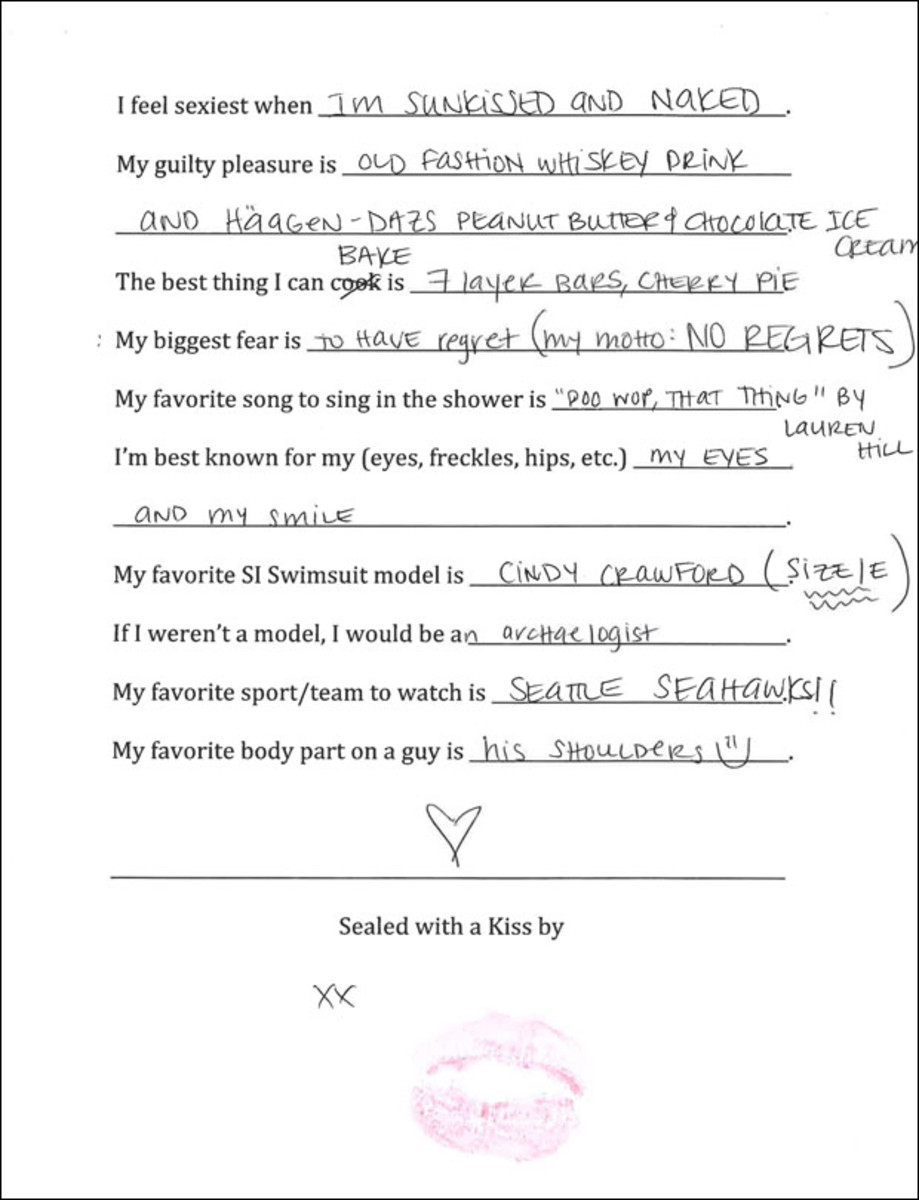 I feel sexiest when I'M SUNKISSED AND NAKED.
My guilty pleasure is OLD FASHION WHISKEY DRINK
AND HÄAGEN-DAZS PEANUT BUTTER & CHOCOLATE ICE
CREAM
BAKE
The best thing I can cook is 7 layer BARS, CHERRY PIE
: My biggest fear is TO HAVE regret (my motto: NO REGRETS)
My favorite song to sing in the shower is "DOO WOP, THAT THING" BY
LAUREN
HILL
I'm best known for my (eyes, freckles, hips, etc.) MY EYES
AND MY SMILE.
My favorite SI Swimsuit model is CINDY CRAWFORD (SIZZLE)
If I weren't a model, I would be an archaelogist.
My favorite sport/team to watch is SEATTLE SEAHAWKS!!
My favorite body part on a guy is his SHOULDERS.
Sealed with a Kiss by
XX